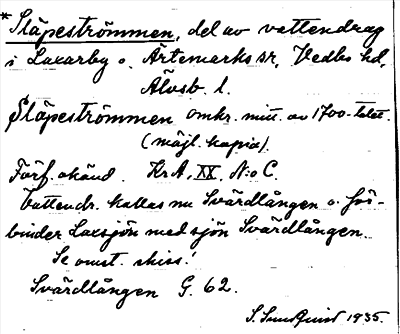 *Släpeströmmen, del av vattendrag
i Laxarby o. Ärtemarks sr, Vedbo hd,
Älvsb. l.
Släpeströmmen omkr. mitt. av 1700-talet.
(möjl. kopia).
Förf. okänd. KrA, XX. N:o C.
Vattendr. kallas nu Svärdlången o. för-
binder Laxsjön med sjön Svärdlången.
Se omst. skiss!
Svärdlången G. 62.
S. Sundquist 1935.